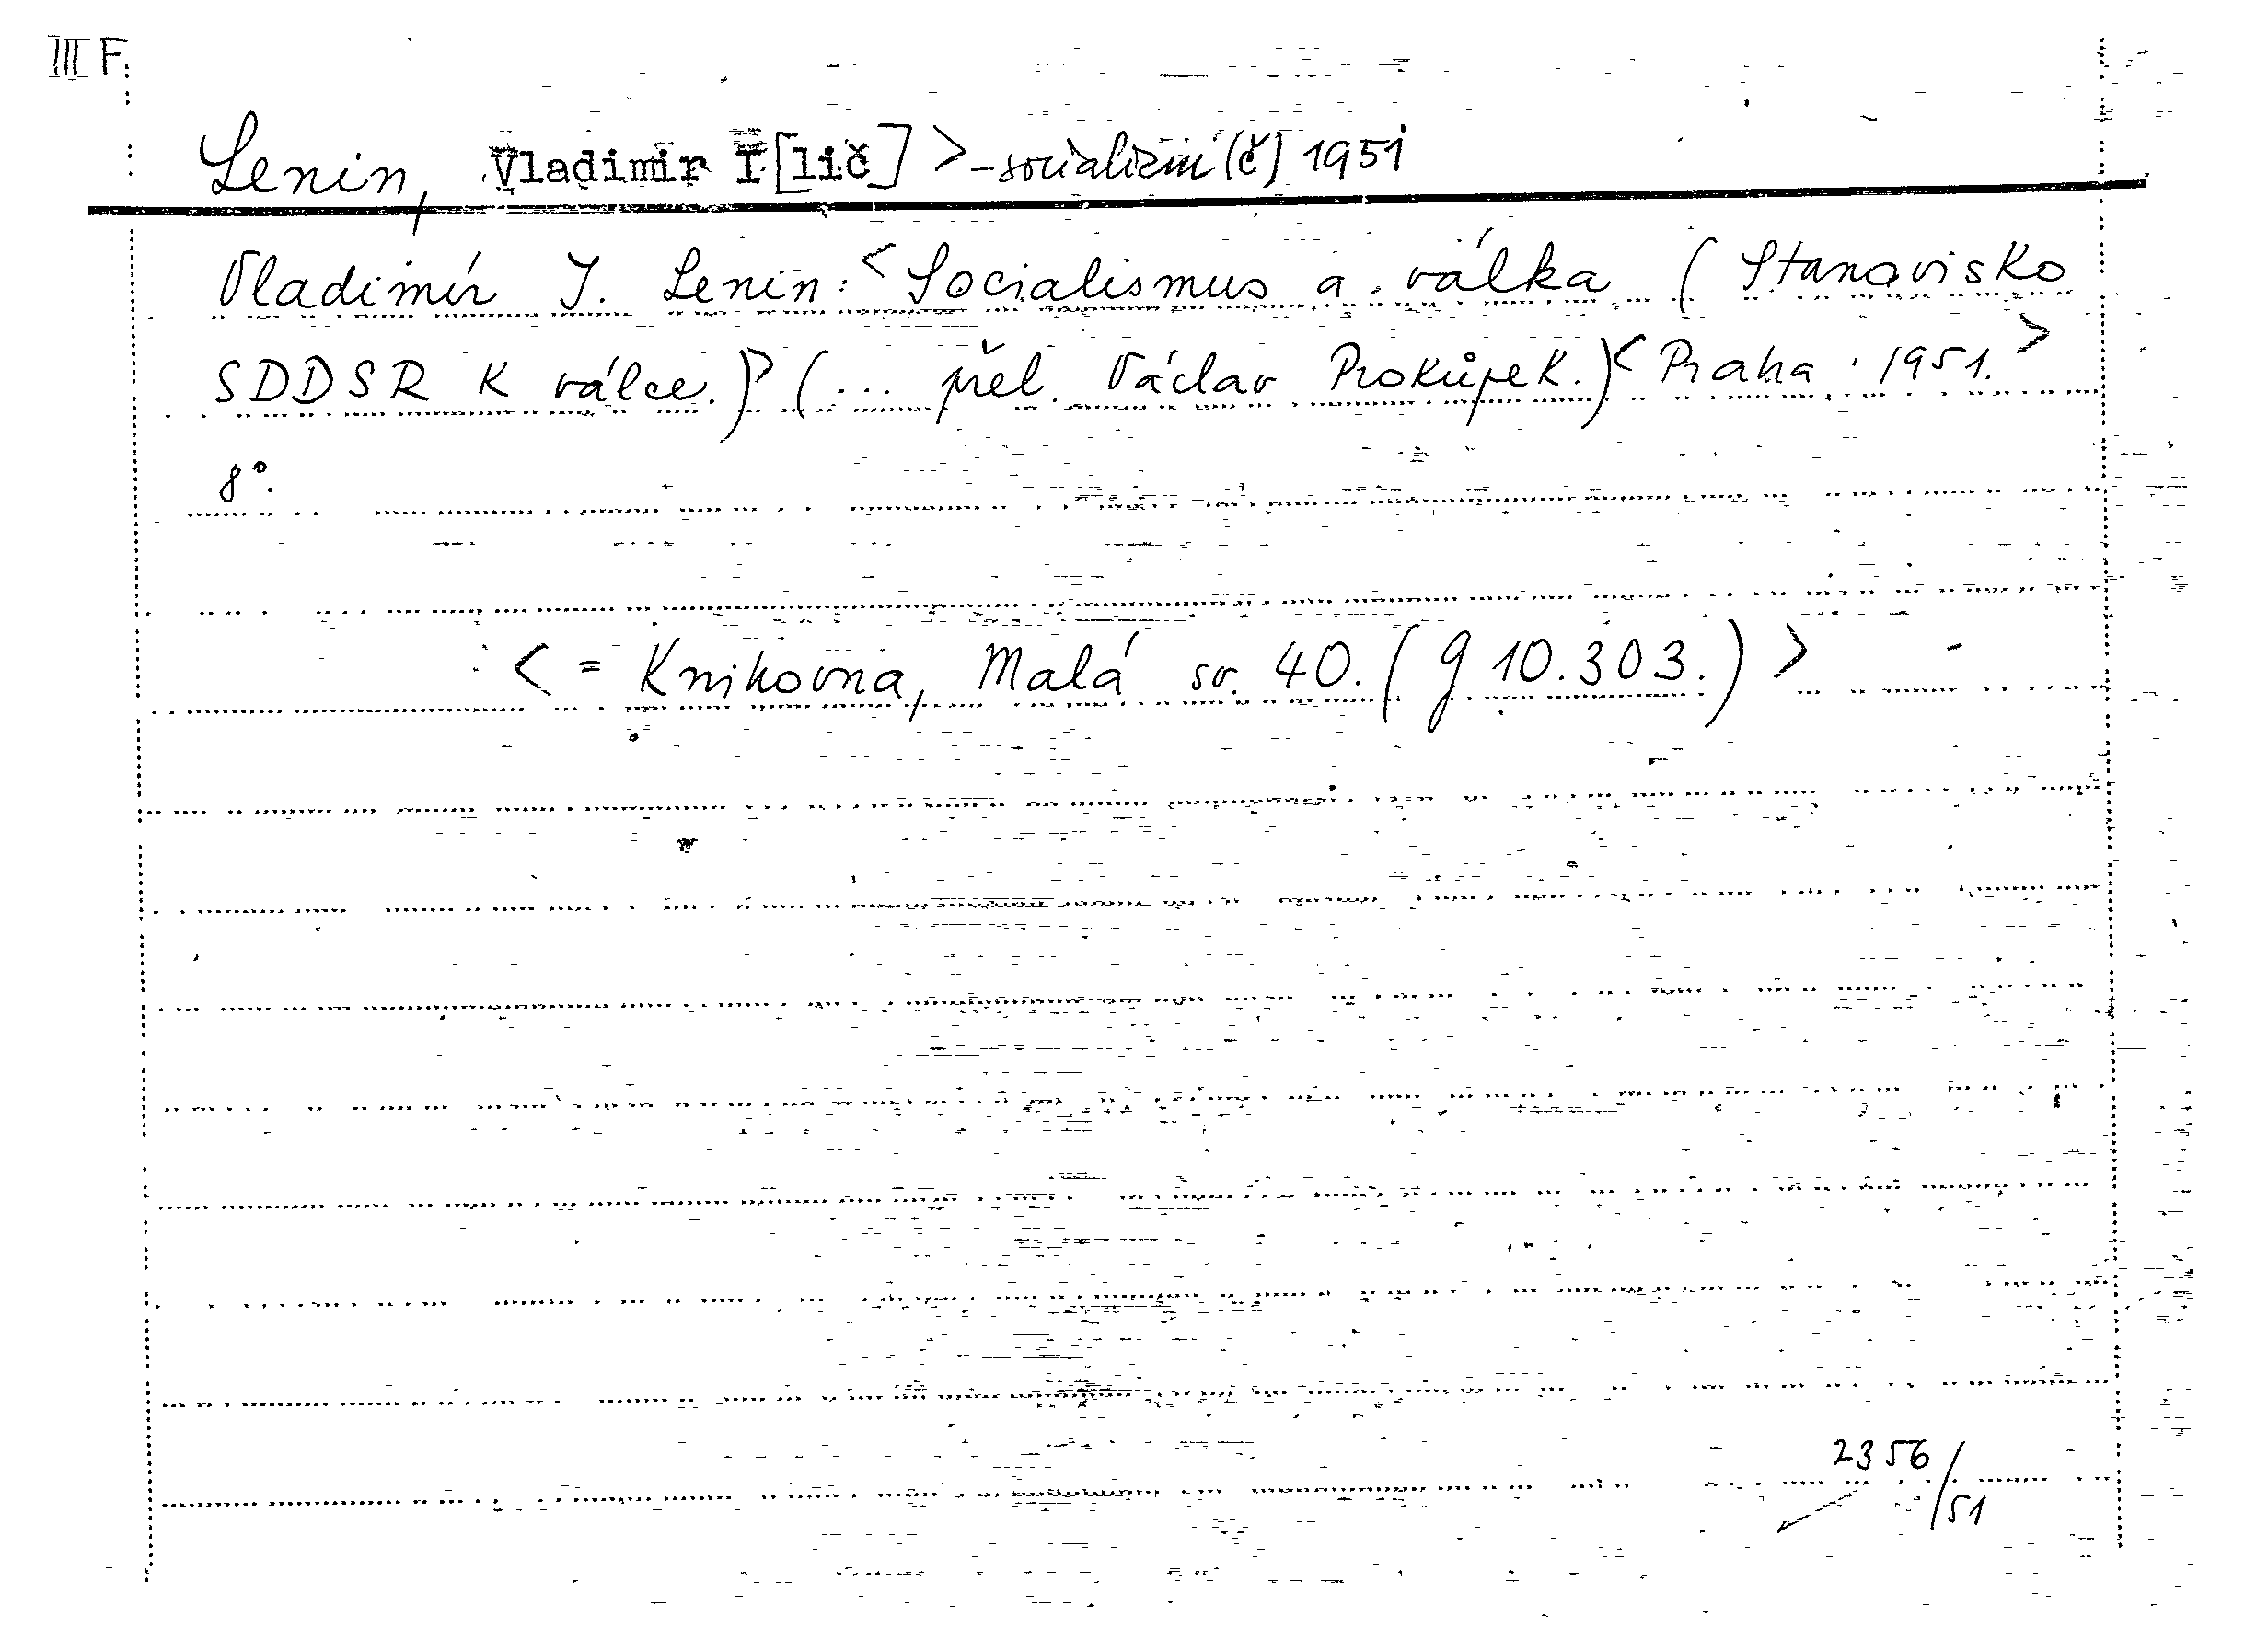 III F
Lenin, Vladimir I[lič] > - socializm (č] 1951
Vladimír I. Lenin: < Socialismus a válka ( Stanovisko
SDDSR k válce.)> (... přel. Václav Prokůpek.) < Praha 1951. >
8°.
< = Knihovna, Malá sv. 40. ( g 10.303.) >
2356/51